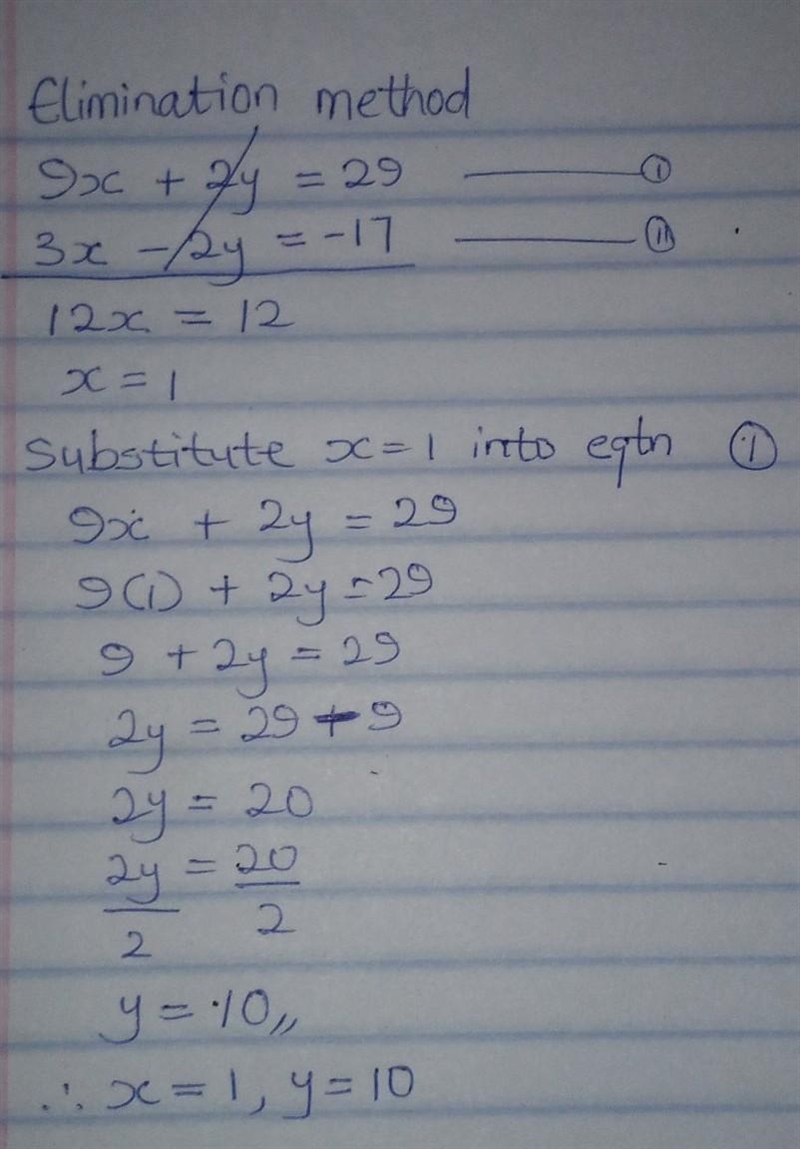 Elimination method
9x + 2y = 29 ——— (i)
3x - 2y = -17 ——— (ii)
12x = 12
x = 1
Substitute x=1 into eqtn (i)
9x + 2y = 29
9(1) + 2y = 29
9 + 2y = 29
2y = 29 - 9
2y = 20
2y/2 = 20/2
y = 10,,
∴ x = 1, y = 10